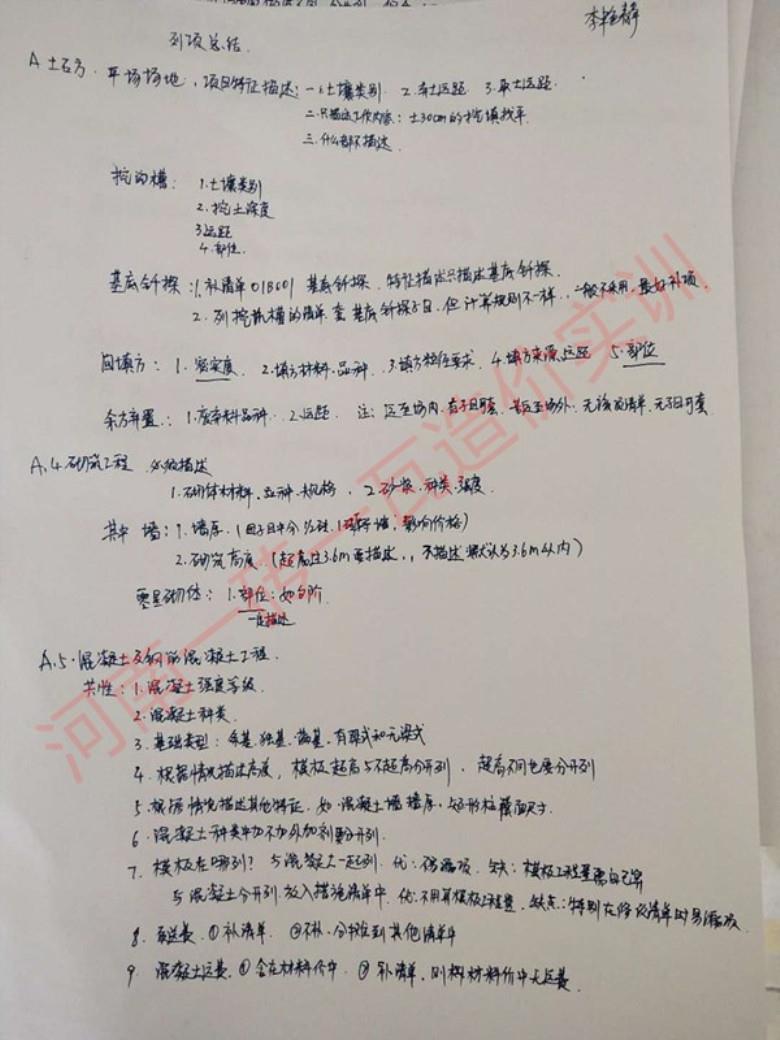 列项总结.
A 土石方. 平场场地, 项目特征描述: 一. 1土壤类别 2.弃土运距 3.取土运距.
二.只描述工作内容: ±30cm的挖填找平.
三.什么都不描述.
挖沟槽: 1.土壤类别
2.挖土深度
3.运距
4.部位.
基底钎探: 1.补清单01B001 基底钎探. 特征描述只描述基底钎探.
2.列挖沟槽的清单.套基底钎探子目,但计算规则不一样, 一般不采用,最好补项.
回填方: 1.密实度. 2.填方材料.品种. 3.填方粒径要求. 4.填方来源.运距 5.部位
余方弃置: 1.废弃料品种. 2.运距. 注: 运至场内.有子目可套. 若运至场外. 无该项清单.无子目可套
A.4砌筑工程 必须描述
1.砌体材料.品种.规格. 2.砂浆.种类.强度.
其中 墙: 1.墙厚. (因子目中分
2.砌筑高度. (超高过3.6m要描述., 不描述默认为3.6m以内)
零星砌体: 1.部位: 如台阶.
一定描述
A.5.混凝土及钢筋混凝土工程.
共性: 1.混凝土强度等级.
2.混凝土种类.
3.基础类型: 条基.独基.筏基.有梁式和无梁式
4.根据情况描述高度, 模板超高与不超高分开列. 超高不同也要分开列
5.根据情况描述其他特征. 如.混凝土墙墙厚.矩形柱截面尺寸.
6.混凝土种类中加不加外加剂要分开列.
7.模板在哪列? 与混凝土一起列. 优: 不易漏项. 缺: 模板工程量需自己算
与混凝土分开列.放入措施清单中. 优:不用算模板工程量. 缺点: 特别在修改清单时易漏项.
8.泵送费. ①补清单. ②不补.分摊到其他清单中
9.混凝土运费. ①含在材料价中. ②补清单.则材料价中无运费.
河南一砖一瓦造价实训